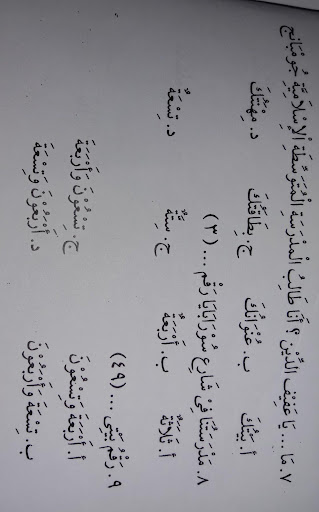 ٧. مَا ... يَا عَفِيْف الدِّيْن ؟ أَنَا طَالِبُ الْمَدْرَسَة الْمُتَوَسِّطَة الْإِسْلَامِيَّة جُوْمْبَانج
أ. بَيْتُكَ ب. عُنْوَانُكَ ج. بِطَاقَتُكَ د. مِهْنَتُكَ
٨. مَدْرَسَتُنَا فِيْ شَارِع سُوْرَابَايَا رَقْم ... (٣)
أ. ثَلَاثَةٌ ب. أَرْبَعَةٌ ج. سِتَّةٌ د. تِسْعَةٌ
٩. رَقْمُ بَيْتِيْ ... (٤٩)
أ. أَرْبَعَة وَتِسْعُوْنَ ج. تِسْعُوْنَ وَأَرْبَعَة
ب. تِسْعَة وَأَرْبَعُوْنَ د. أَرْبَعُوْنَ وَتِسْعَة